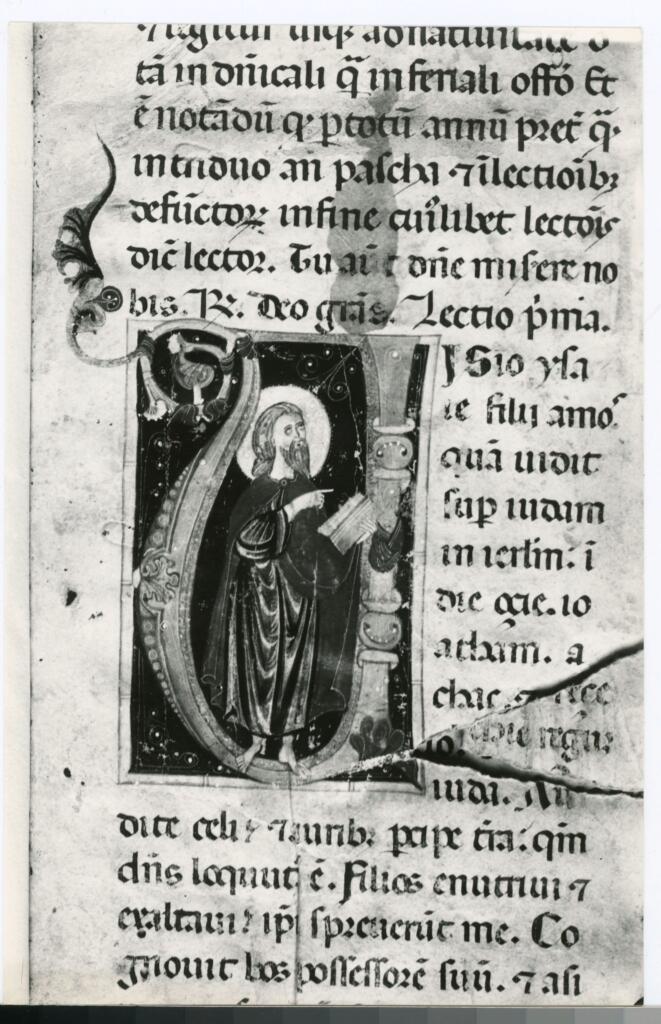 tā in dn̄icali q̄ in feriali offō Et
ē notādū qꝫ p totū annū pret̄ q̄
in triduo an̄ pascha ⁊ ī lectioībꝫ
defūctoꝝ in fine cuiꝰlibet lectōis
dic̄ lector. Tu aut dn̄e miserere no
bis. ℟. Deo grās. Lectio p̄ma.
VISio ysa
ie filij amos
quā uidit
sup iudam
in ierlm̄: ī
die oꝫie. io
atham. a
chaꝫ. ⁊
regū
iuda.
dite celi ⁊ auribꝫ pcipe tr̄a: qm̄
dn̄s loquut ē. Filios enutriui ⁊
exaltaui: ip̄i spreuerūt me. Co
gnouit bos possessorē suū. ⁊ asi